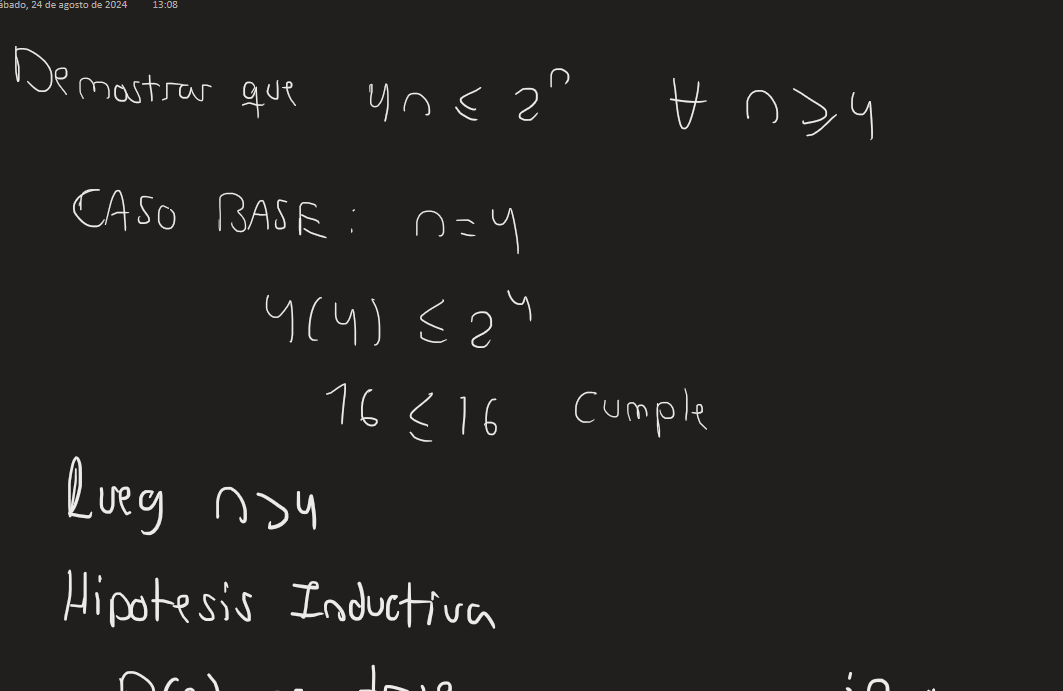 ábado, 24 de agosto de 2024 13:08
Demostrar que 4n ≤ 2^n ∀ n ≥ 4
CASO BASE: n=4
4(4) ≤ 2^4
16 ≤ 16 Cumple
Lueg n>4
Hipotesis Inductiva